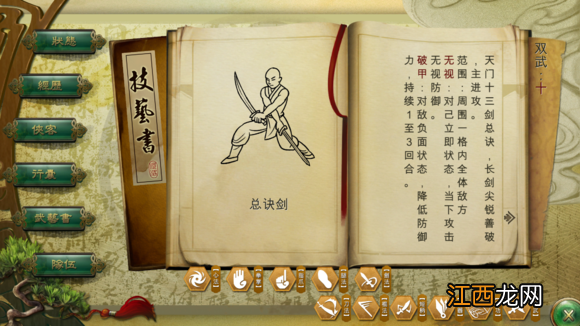 狀態
經歷
俠客
行囊
武藝書
隊伍
技藝書
总诀剑
双武：十
天门十三剑总诀，长剑尖锐善破
，主进攻。
范围：周围一格内全体敌方
无视：对己立即状态，当下攻击
无视防御。
破甲：对敌负面状态，降低防御
力，持续1至3回合。
江西龙网